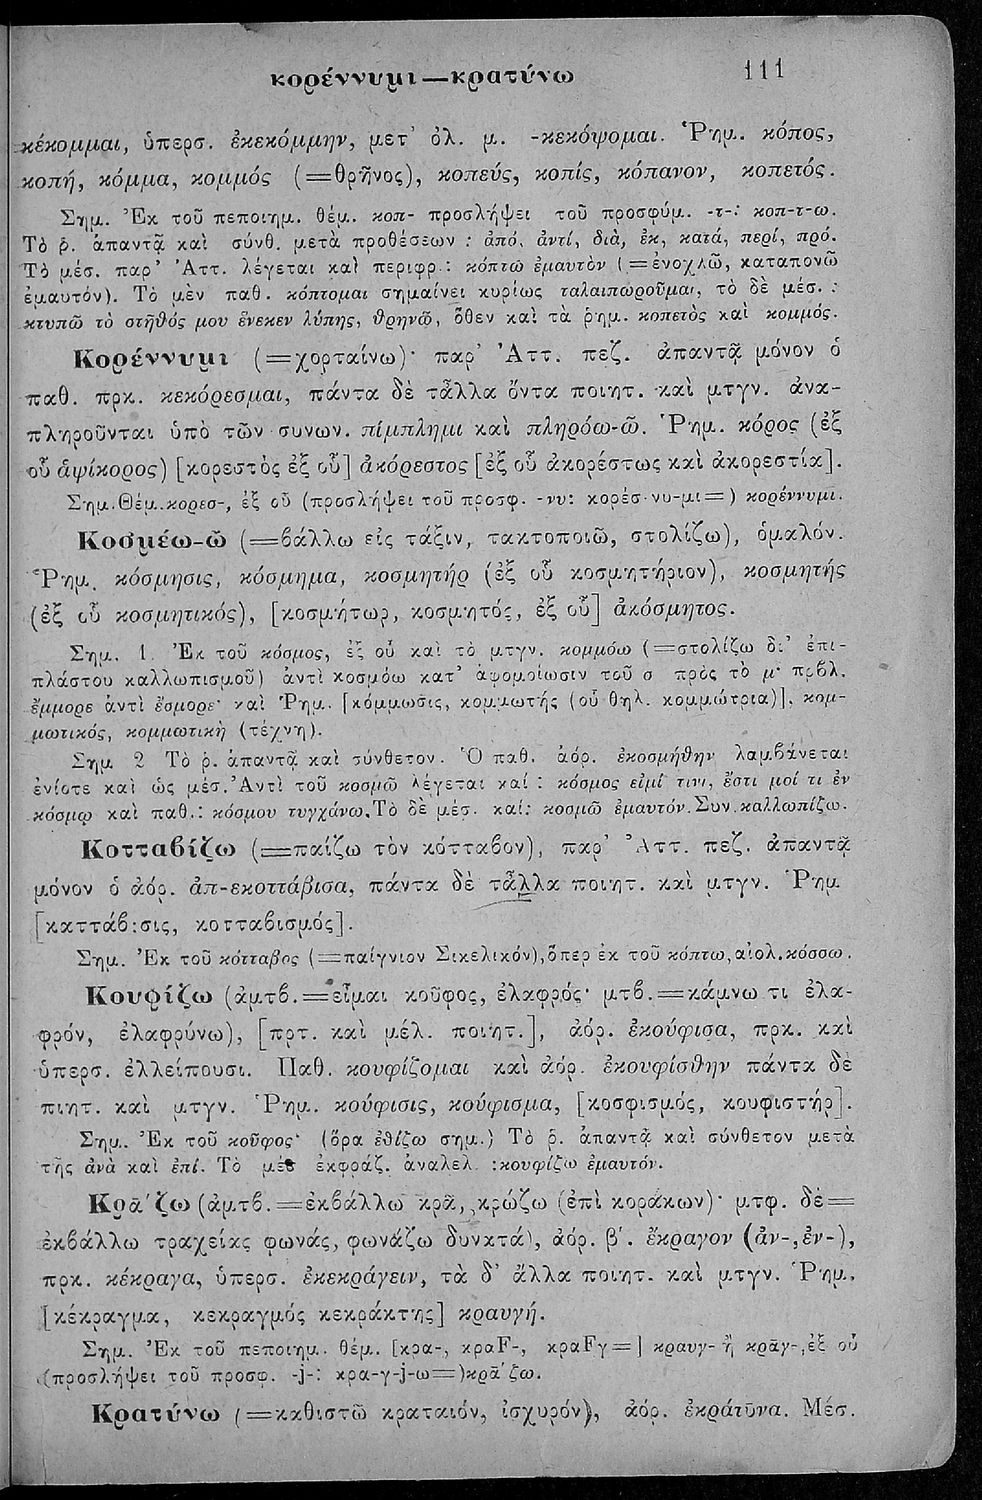 κορέννυμι—κρατύνω 111
κέκομμαι, ὑπερσ. ἐκεκόμμην, μετ' ὀλ. μ. -κεκόψομαι. Ῥημ. κόπος,
κοπή, κόμμα, κομμός (=θρῆνος), κοπεύς, κοπίς, κόπανον, κοπετός.
Σημ. Ἐκ τοῦ πεποιημ. θέμ. κοπ- προσλήψει τοῦ προσφύμ. -τ-: κοπ-τ-ω.
Τὸ ῥ. ἀπαντᾷ καὶ σύνθ. μετὰ προθέσεων : ἀπό, ἀντί, διὰ, ἐκ, κατά, περί, πρό.
Τὸ μέσ. παρ' Ἀττ. λέγεται καὶ περιφρ.: κόπτω ἐμαυτὸν (=ἐνοχλῶ, καταπονῶ
ἐμαυτόν). Τὸ μὲν παθ. κόπτομαι σημαίνει κυρίως ταλαιπωροῦμαι, τὸ δὲ μέσ. :
κτυπῶ τὸ στῆθός μου ἕνεκεν λύπης, θρηνῶ, ὅθεν καὶ τὰ ῥημ. κοπετὸς καὶ κομμός.
Κορέννυμι (=χορταίνω)· παρ' Ἀττ. πεζ. ἀπαντᾷ μόνον ὁ
παθ. πρκ. κεκόρεσμαι, πάντα δὲ τἆλλα ὄντα ποιητ. καὶ μτγν. ἀνα-
πληροῦνται ὑπὸ τῶν συνων. πίμπλημι καὶ πληρόω-ῶ. Ῥημ. κόρος (ἐξ
οὗ ἁψίκορος) [κορεστὸς ἐξ οὗ] ἀκόρεστος [ἐξ οὗ ἀκορέστως καὶ ἀκορεστία].
Σημ. Θέμ. κορεσ-, ἐξ οὗ (προσλήψει τοῦ προσφ. -νυ: κορέσ-νυ-μι=) κορέννυμι.
Κοσμέω-ῶ (=βάλλω εἰς τάξιν, τακτοποιῶ, στολίζω), ὁμαλόν.
Ῥημ. κόσμησις, κόσμημα, κοσμητήρ (ἐξ οὗ κοσμητήριον), κοσμητής
(ἐξ οὗ κοσμητικός), [κοσμήτωρ, κοσμητός, ἐξ οὗ] ἀκόσμητος.
Σημ. 1. Ἐκ τοῦ κόσμος, ἐξ οὗ καὶ τὸ μτγν. κομμόω (=στολίζω δι' ἐπι-
πλάστου καλλωπισμοῦ) ἀντὶ κοσμόω κατ' ἀφομοίωσιν τοῦ σ πρὸς τὸ μ· πρβλ.
ἔμμορε ἀντὶ ἔσμορε· καὶ Ῥημ. [κόμμωσις, κομμωτής (οὗ θηλ. κομμώτρια)], κομ-
μωτικός, κομμωτικὴ (τέχνη).
Σημ. 2 Τὸ ῥ. ἀπαντᾷ καὶ σύνθετον. Ὁ παθ. ἀόρ. ἐκοσμήθην λαμβάνεται
ἐνίοτε καὶ ὡς μέσ. Ἀντὶ τοῦ κοσμῶ λέγεται καί : κόσμος εἰμί τινι, ἔστι μοί τι ἐν
κόσμῳ καὶ παθ.: κόσμου τυγχάνω. Τὸ δὲ μέσ. καί: κοσμῶ ἐμαυτόν. Συν. καλλωπίζω.
Κοτταβίζω (=παίζω τὸν κότταβον), παρ' Ἀττ. πεζ. ἀπαντᾷ
μόνον ὁ ἀόρ. ἀπ-εκοττάβισα, πάντα δὲ τἆλλα ποιητ. καὶ μτγν. Ῥημ
[καττάβισις, κοτταβισμός].
Σημ. Ἐκ τοῦ κότταβος (=παίγνιον Σικελικόν), ὅπερ ἐκ τοῦ κόπτω, αἰολ. κόσσω.
Κουφίζω (ἀμτβ.=εἶμαι κοῦφος, ἐλαφρός· μτβ.=κάμνω τι ἐλα-
φρόν, ἐλαφρύνω), [πρτ. καὶ μέλ. ποιητ.], ἀόρ. ἐκούφισα, πρκ. καὶ
ὑπερσ. ἐλλείπουσι. Παθ. κουφίζομαι καὶ ἀόρ. ἐκουφίσθην πάντα δὲ
πιητ. καὶ μτγν. Ῥημ. κούφισις, κούφισμα, [κοσφισμός, κουφιστήρ].
Σημ. Ἐκ τοῦ κοῦφος· (ὅρα ἐθίζω σημ.) Τὸ ῥ. ἀπαντᾷ καὶ σύνθετον μετὰ
τῆς ἀνὰ καὶ ἐπί. Τὸ μέσ ἐκφράζ. ἀναλελ. :κουφίζω ἐμαυτόν.
Κρᾱ́ζω (ἀμτβ.=ἐκβάλλω κρᾶ, κρώζω (ἐπὶ κοράκων)· μτφ. δὲ=
ἐκβάλλω τραχείας φωνάς, φωνάζω δυνατά), ἀόρ. β'. ἔκραγον (ἀν-, ἐν-),
πρκ. κέκραγα, ὑπερσ. ἐκεκράγειν, τὰ δ' ἄλλα ποιητ. καὶ μτγν. Ῥημ.
[κέκραγμα, κεκραγμός κεκράκτης] κραυγή.
Σημ. Ἐκ τοῦ πεποιημ. θέμ. [κρα-, κραF-, κραFγ=] κραυγ- ἢ κρᾱγ-, ἐξ οὗ
(προσλήψει τοῦ προσφ. -j-: κρα-γ-j-ω=) κρᾱ́ζω.
Κρατύνω (=καθιστῶ κραταιόν, ἰσχυρόν), ἀόρ. ἐκράτῡνα. Μέσ.